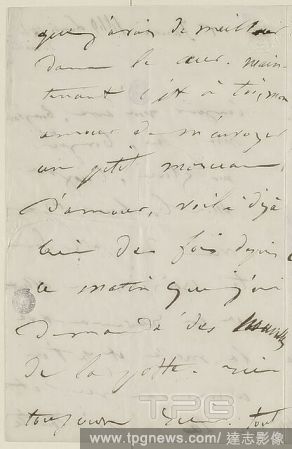 que j'avais de meilleur
dans le cœur. main-
tenant c'est à toi, mon
amour de m'envoyer
un petit morceau
d'amour, voilà déjà
bien des fois depuis
ce matin que j'ai
demandé des
de la poste. rien
toujours rien. tout
TPG
www.tpgnews.com / 達志影像